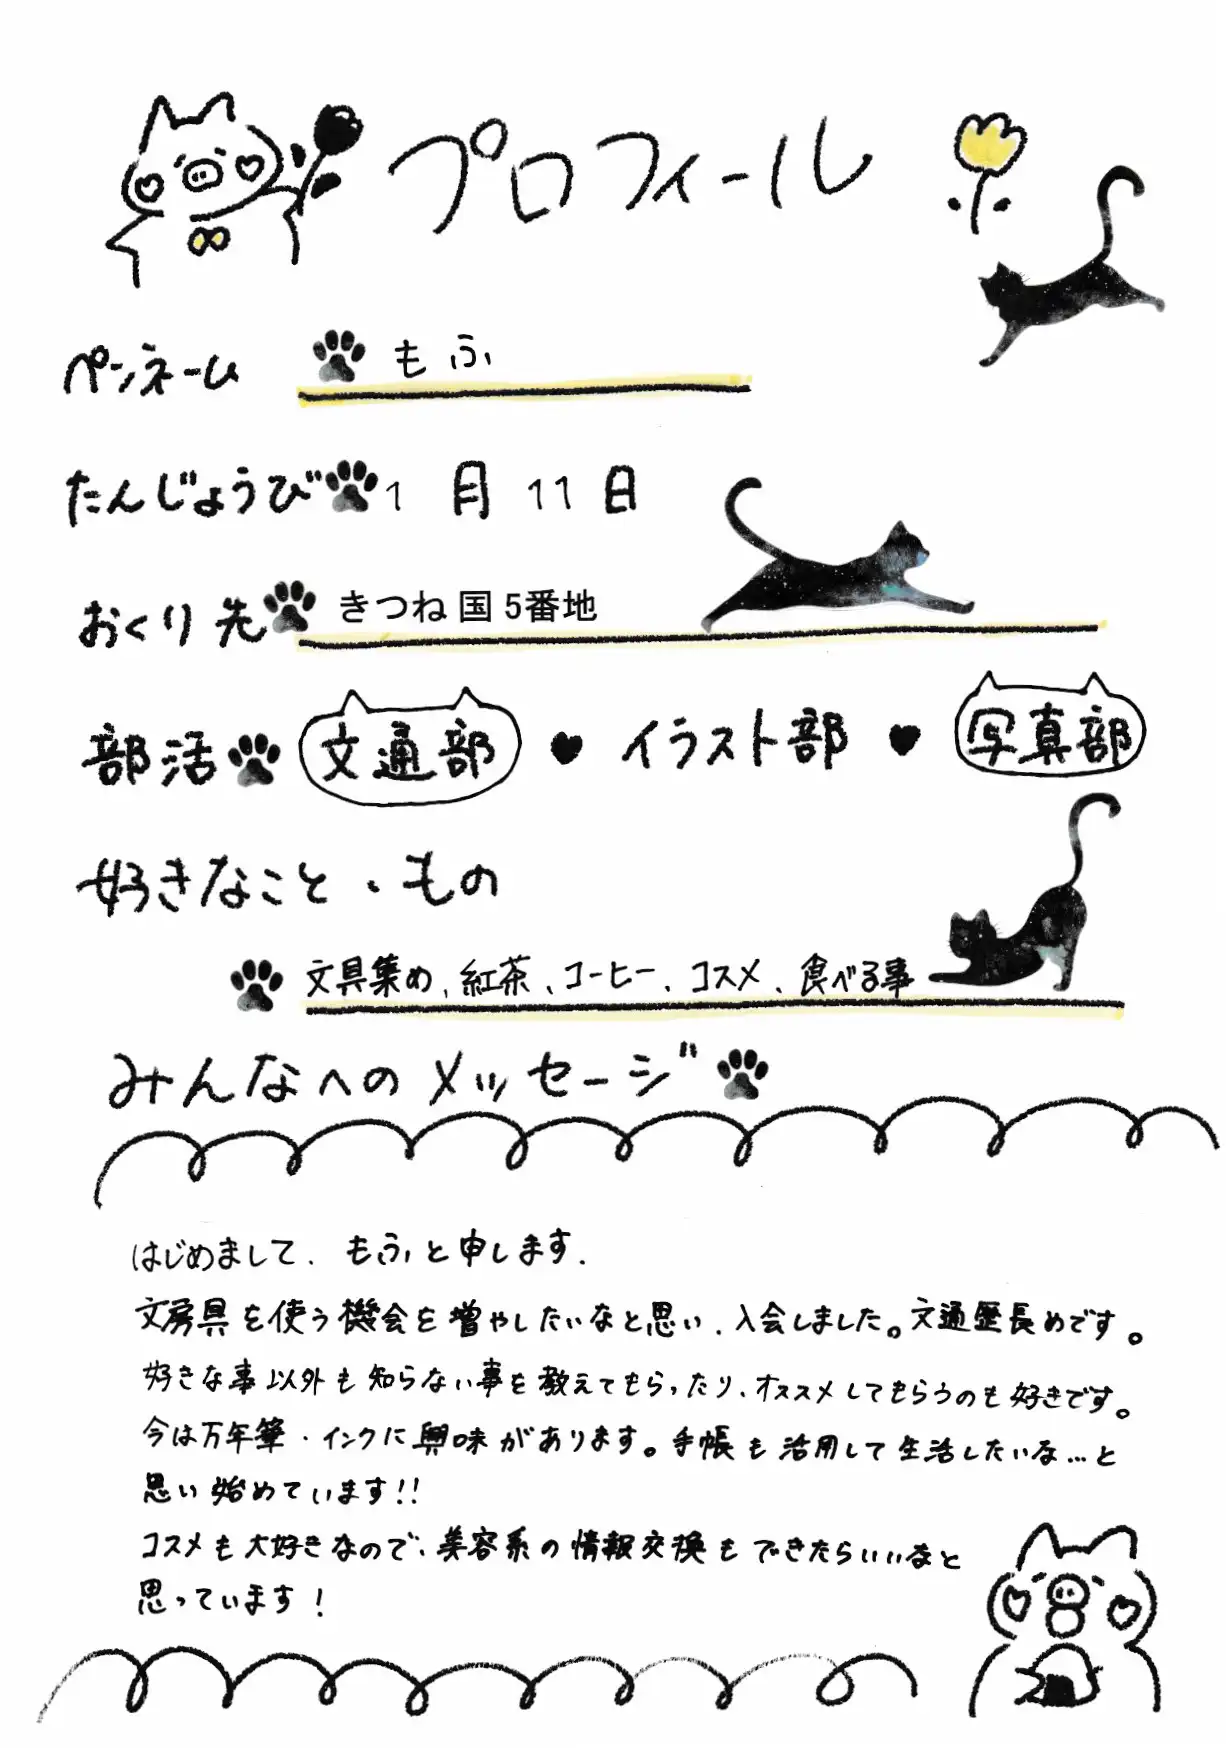 プロフィール
ペンネーム もふ
たんじょうび 1 月 11 日
おくり先 きつね国 5番地
部活 文通部 ♥ イラスト部 ♥ 写真部
好きなこと、もの
文具集め、紅茶、コーヒー、コスメ、食べる事
みんなへのメッセージ
はじめまして、もふと申します.
文房具を使う機会を増やしたいなと思い、入会しました。文通歴長めです。
好きな事以外も知らない事を教えてもらったり、オススメしてもらうのも好きです。
今は万年筆・インクに興味があります。手帳も活用して生活したいな…と
思い始めています!!
コスメも大好きなので、美容系の情報交換もできたらいいなと
思っています!